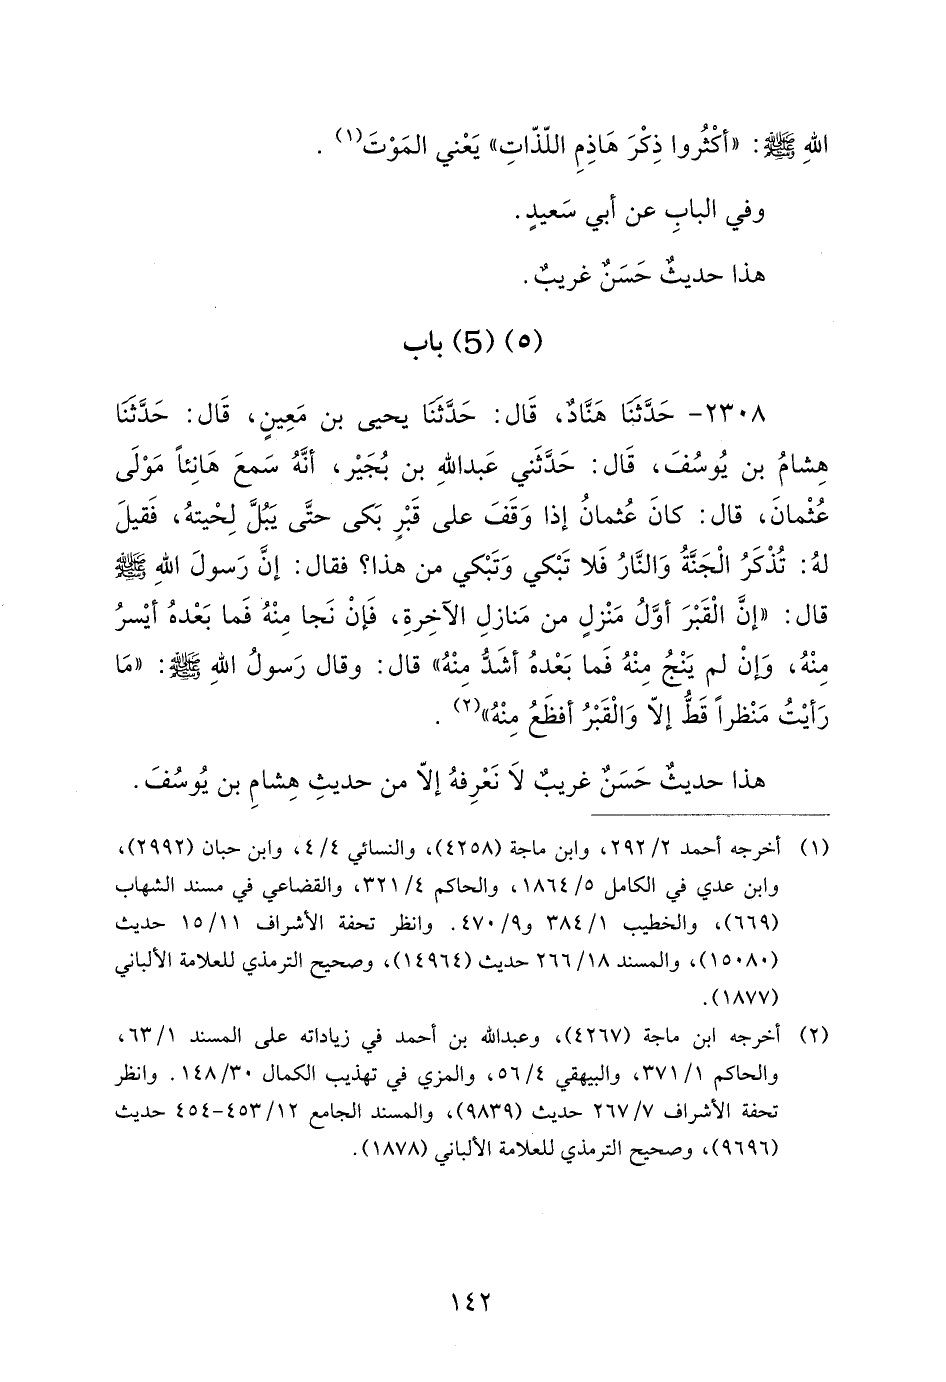 اللهِ ﷺ: «أكْثُروا ذِكْرَ هَاذِمِ اللّذّاتِ» يَعْني المَوْتَ(١) .
وفي البابِ عن أبي سَعيدٍ.
هذا حديثٌ حَسَنٌ غريبٌ.
(٥) (5) باب
٢٣٠٨- حَدَّثَنَا هَنَّادٌ، قَال: حَدَّثَنَا يحيى بن مَعِينٍ، قَال: حَدَّثَنَا
هِشامُ بن يُوسُفَ، قَال: حَدَّثَني عَبدالله بن بُجَيْر، أنَّهُ سَمعَ هَانئاً مَوْلَى
عُثْمانَ، قال: كانَ عُثمانُ إذا وَقَفَ على قَبْرٍ بَكى حتَّى يَبُلَّ لِحْيتهُ، فَقيلَ
لهُ: تُذْكَرُ الْجَنَّةُ وَالنَّارُ فَلا تَبْكي وَتَبْكي من هذا؟ فقال: إنَّ رَسولَ اللهِ ﷺ
قال: «إنَّ الْقَبْرَ أوَّلُ مَنْزِلٍ من مَنازلِ الآخِرةِ، فَإنْ نَجا مِنْهُ فَما بَعْدهُ أيْسرُ
مِنْهُ، وَإنْ لم يَنْجُ مِنْهُ فَما بَعْدهُ أشَدُّ مِنْهُ» قال: وقال رَسولُ اللهِ ﷺ: «مَا
رَأيْتُ مَنْظراً قَطُّ إلاّ وَالْقَبْرُ أفظَعُ مِنْهُ»(٢) .
هذا حديثٌ حَسَنٌ غريبٌ لاَ نَعْرِفهُ إلاّ من حديثِ هِشامِ بن يُوسُفَ.
(١) أخرجه أحمد ٢٩٢/٢، وابن ماجة (٤٢٥٨)، والنسائي ٤/٤، وابن حبان (٢٩٩٢)،
وابن عدي في الكامل ١٨٦٤/٥، والحاكم ٣٢١/٤، والقضاعي في مسند الشهاب
(٦٦٩)، والخطيب ٣٨٤/١ و٤٧٠/٩. وانظر تحفة الأشراف ١٥/١١ حديث
(١٥٠٨٠)، والمسند ٢٦٦/١٨ حديث (١٤٩٦٤)، وصحيح الترمذي للعلامة الألباني
(١٨٧٧).
(٢) أخرجه ابن ماجة (٤٢٦٧)، وعبدالله بن أحمد في زياداته على المسند ٦٣/١،
والحاكم ٣٧١/١، والبيهقي ٥٦/٤، والمزي في تهذيب الكمال ١٤٨/٣٠. وانظر
تحفة الأشراف ٢٦٧/٧ حديث (٩٨٣٩)، والمسند الجامع ٤٥٣/١٢-٤٥٤ حديث
(٩٦٩٦)، وصحيح الترمذي للعلامة الألباني (١٨٧٨).
١٤٢